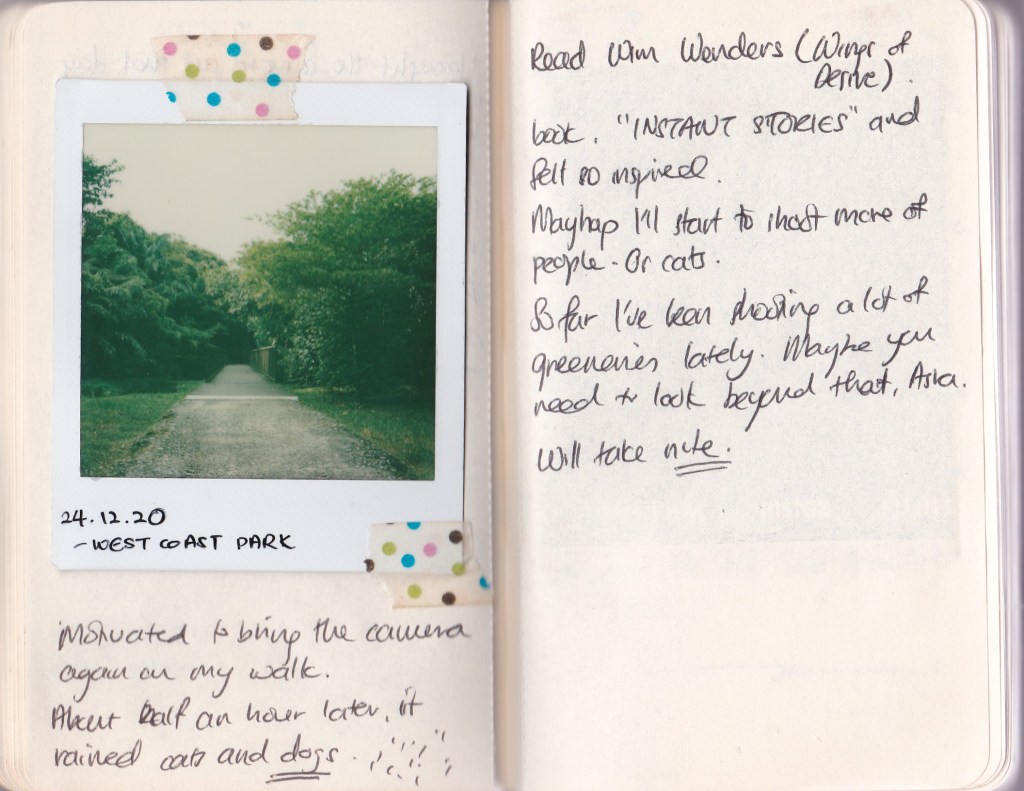 24.12.20
- WEST COAST PARK
Motivated to bring the camera
again on my walk.
About half an hour later, it
rained cats and dogs.
Read Wim Wenders (Wings of
Desire).
book. "INSTANT STORIES" and
felt so inspired.
Mayhap I'll start to shoot more of
people. Or cats.
So far I've been shooting a lot of
greeneries lately. Maybe you
need to look beyond that, Asra.
Will take note.